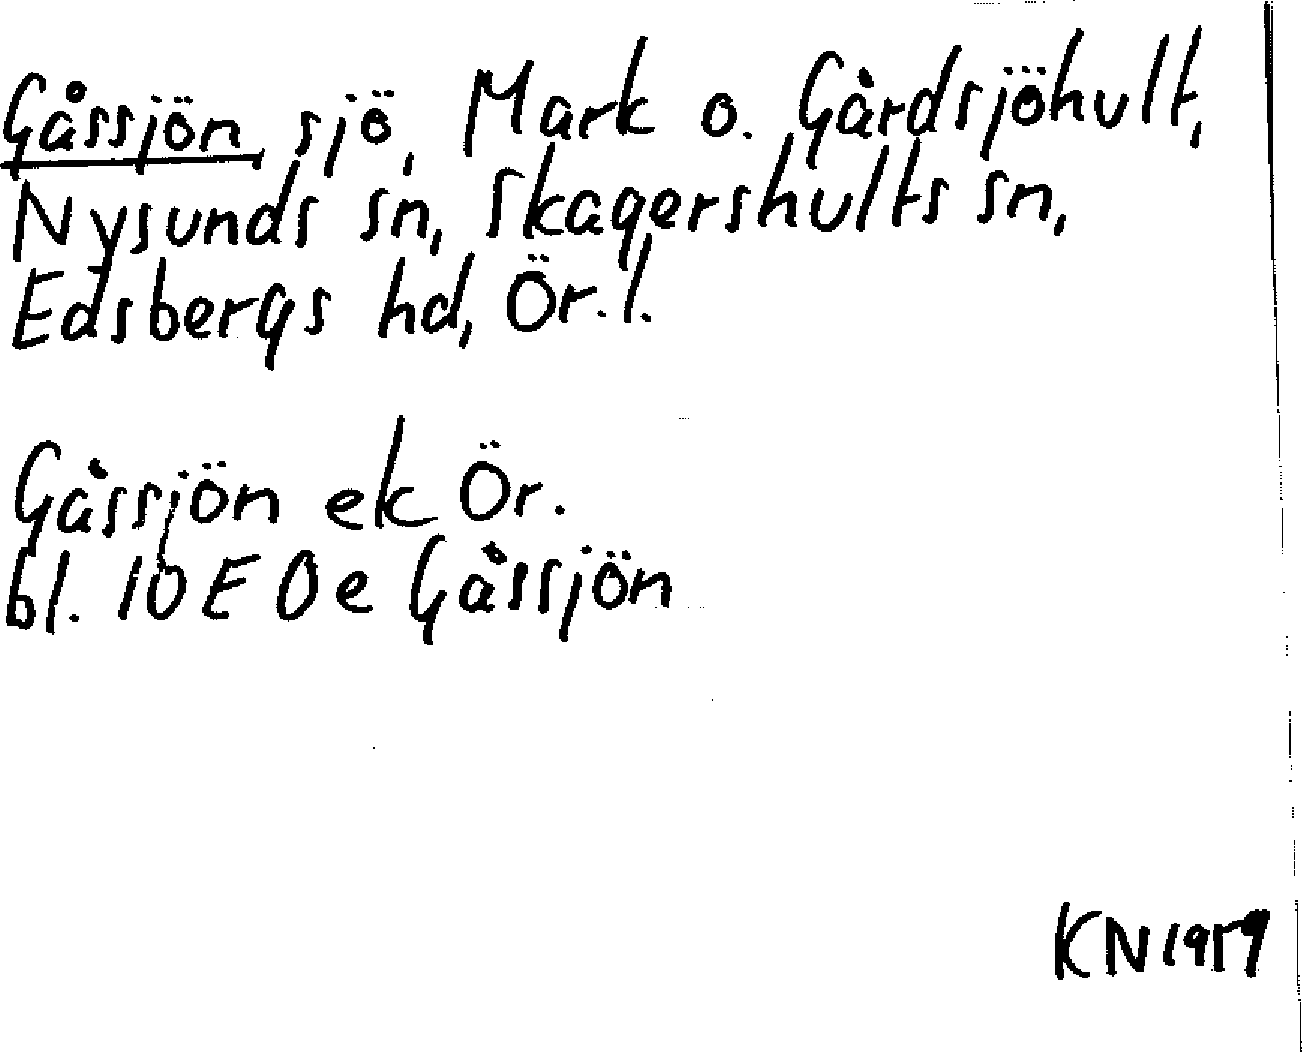 Gåssjön, sjö, Mark o. Gårdsjöhult,
Nysunds sn, Skagershults sn,
Edsbergs hd, Ör. l.
Gåssjön ek Ör.
bl. 10 E 0 e Gåssjön
KN